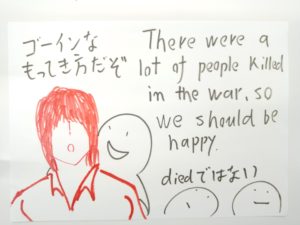 ゴーインな
もってき方だぞ
There were a
lot of people killed
in the war, so
we should be
happy.
diedではない